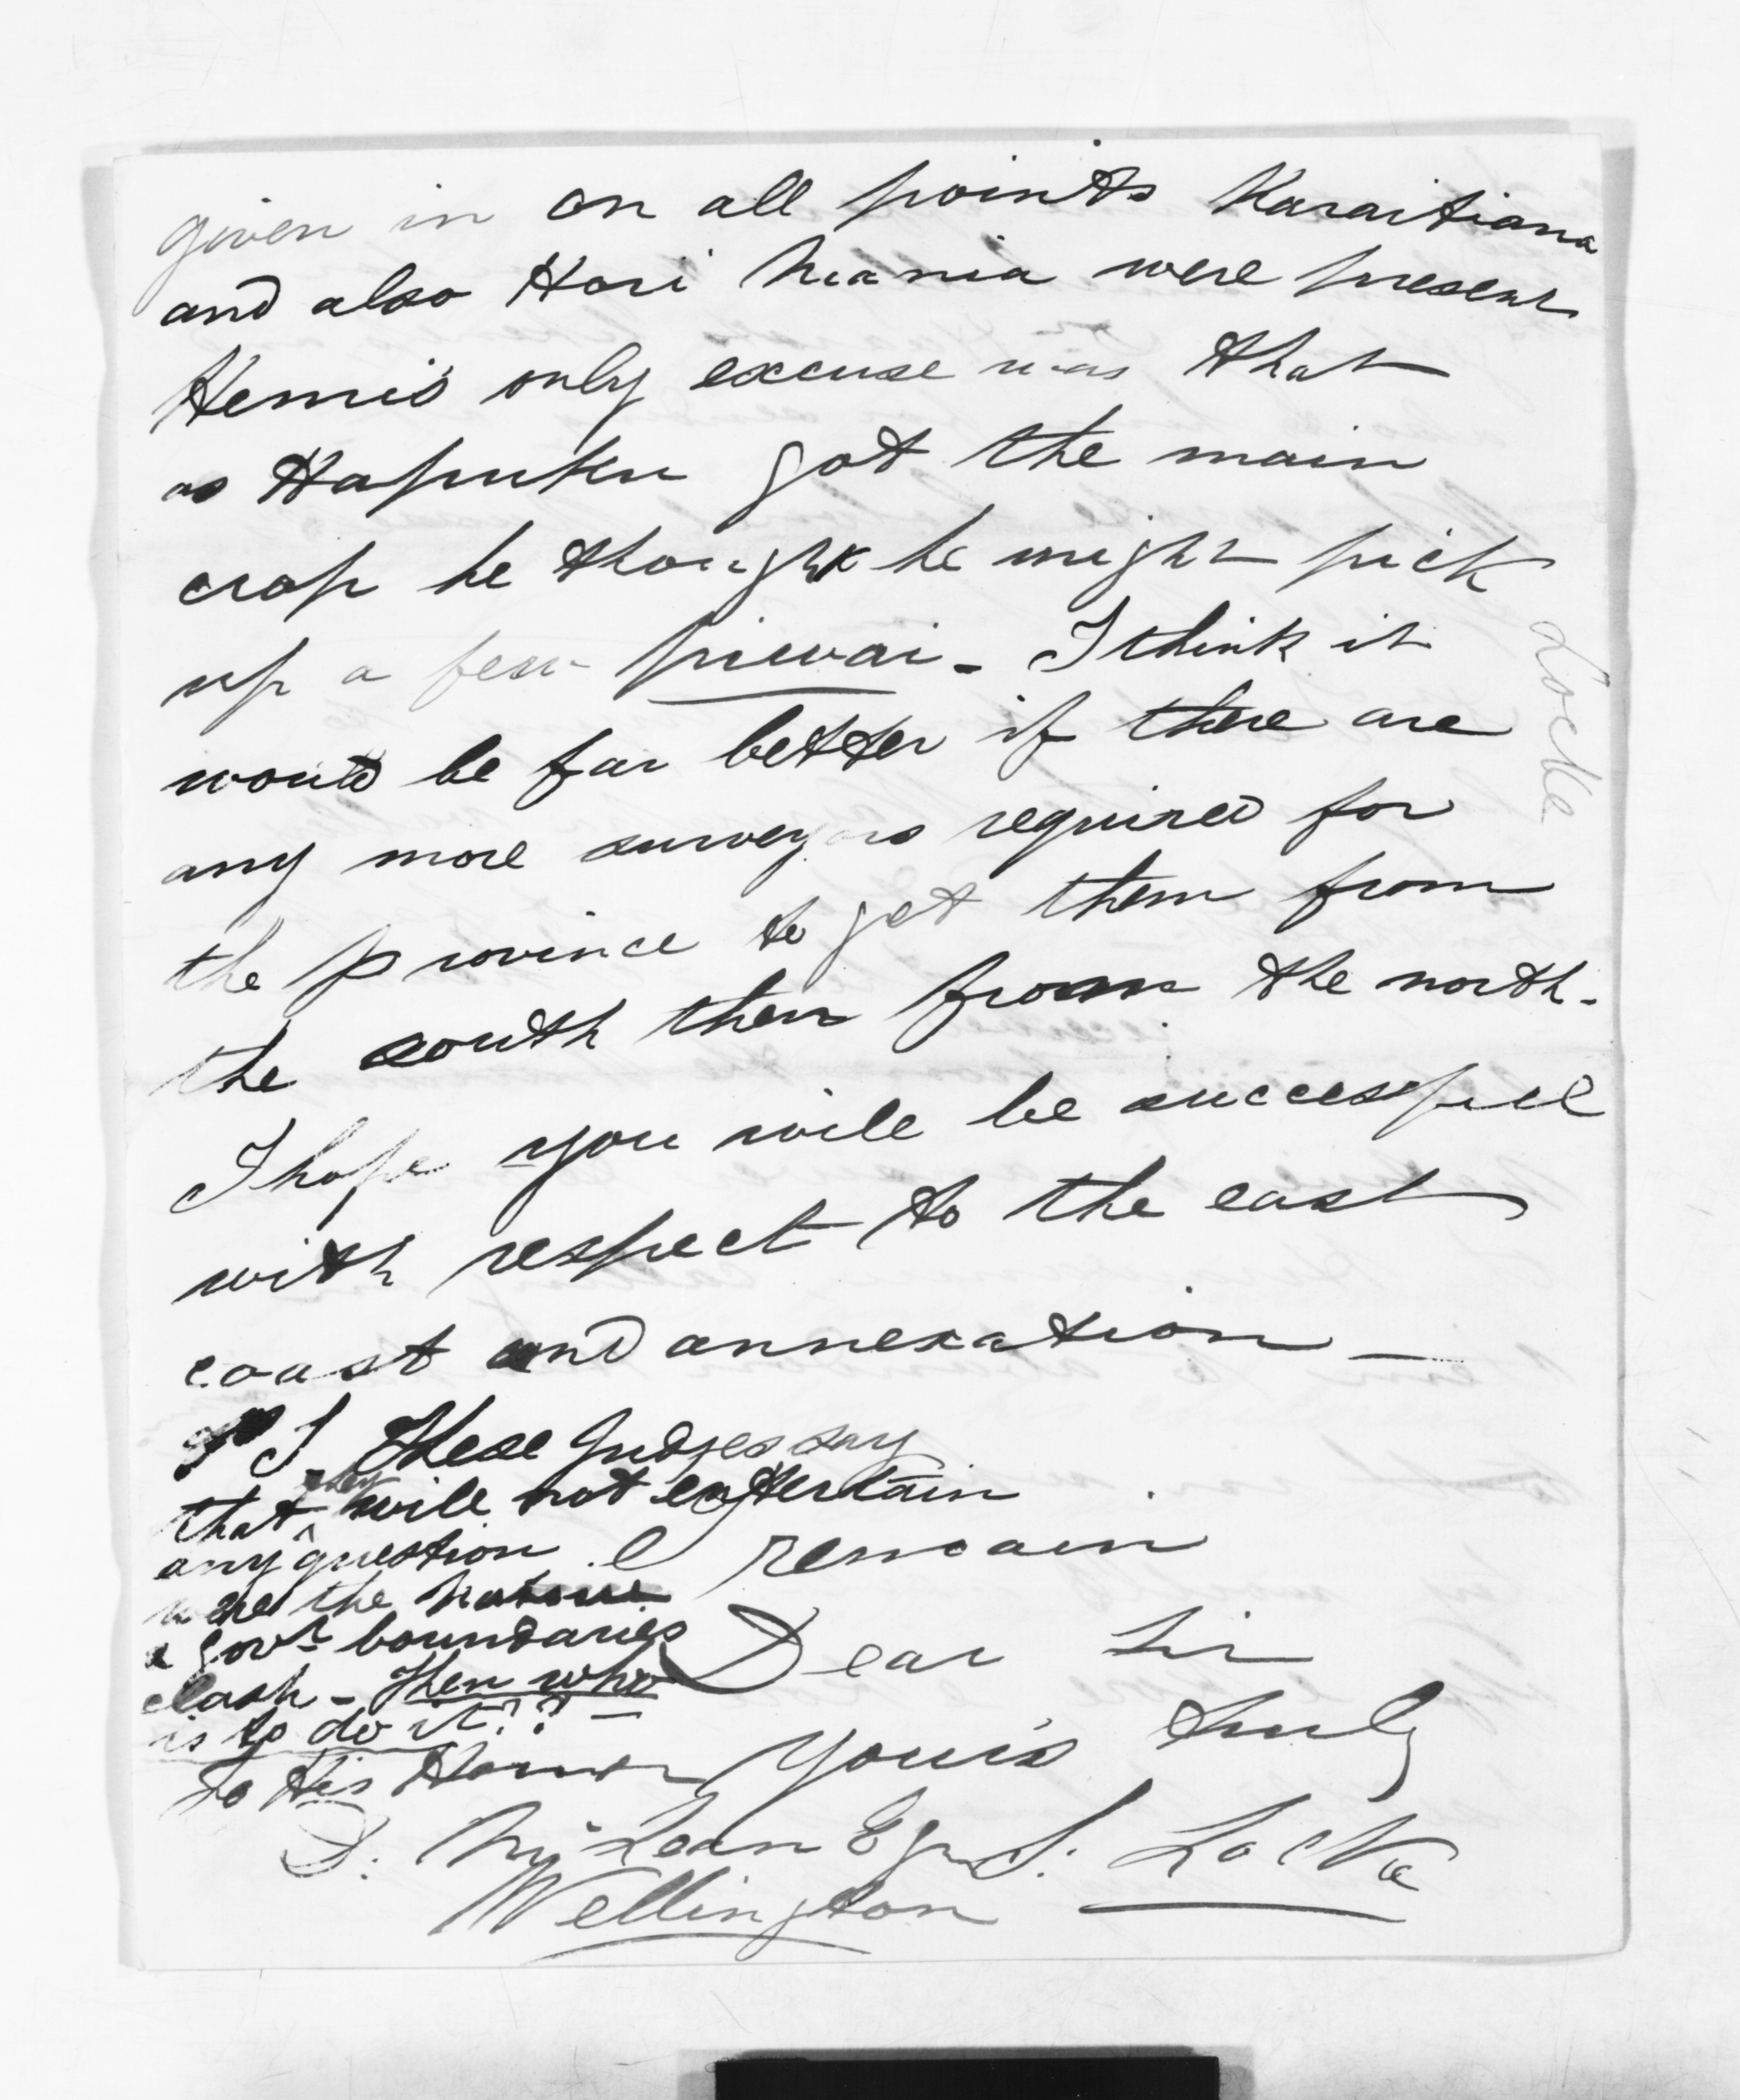 given in on all points Karaitiana
and also Hori Niania were present
Hemi's only excuse was that
as Hapuku got the main
crop he thought he might pick
up a few piwai - I think it
would be far better if there are
any more surveyors required for
the province to get them from
the south then from the north -
I hope you will be successfull
with respect to the east
coast and annexation —
P S. These Judges say
that they will not entertain
any question
were the native
& Govt boundaries
clash - Then who
is to do it?? —
I remain
Dear Sir
your's truly
S. Locke
To His Honor
D. McLean Esqr
Wellington
Locke